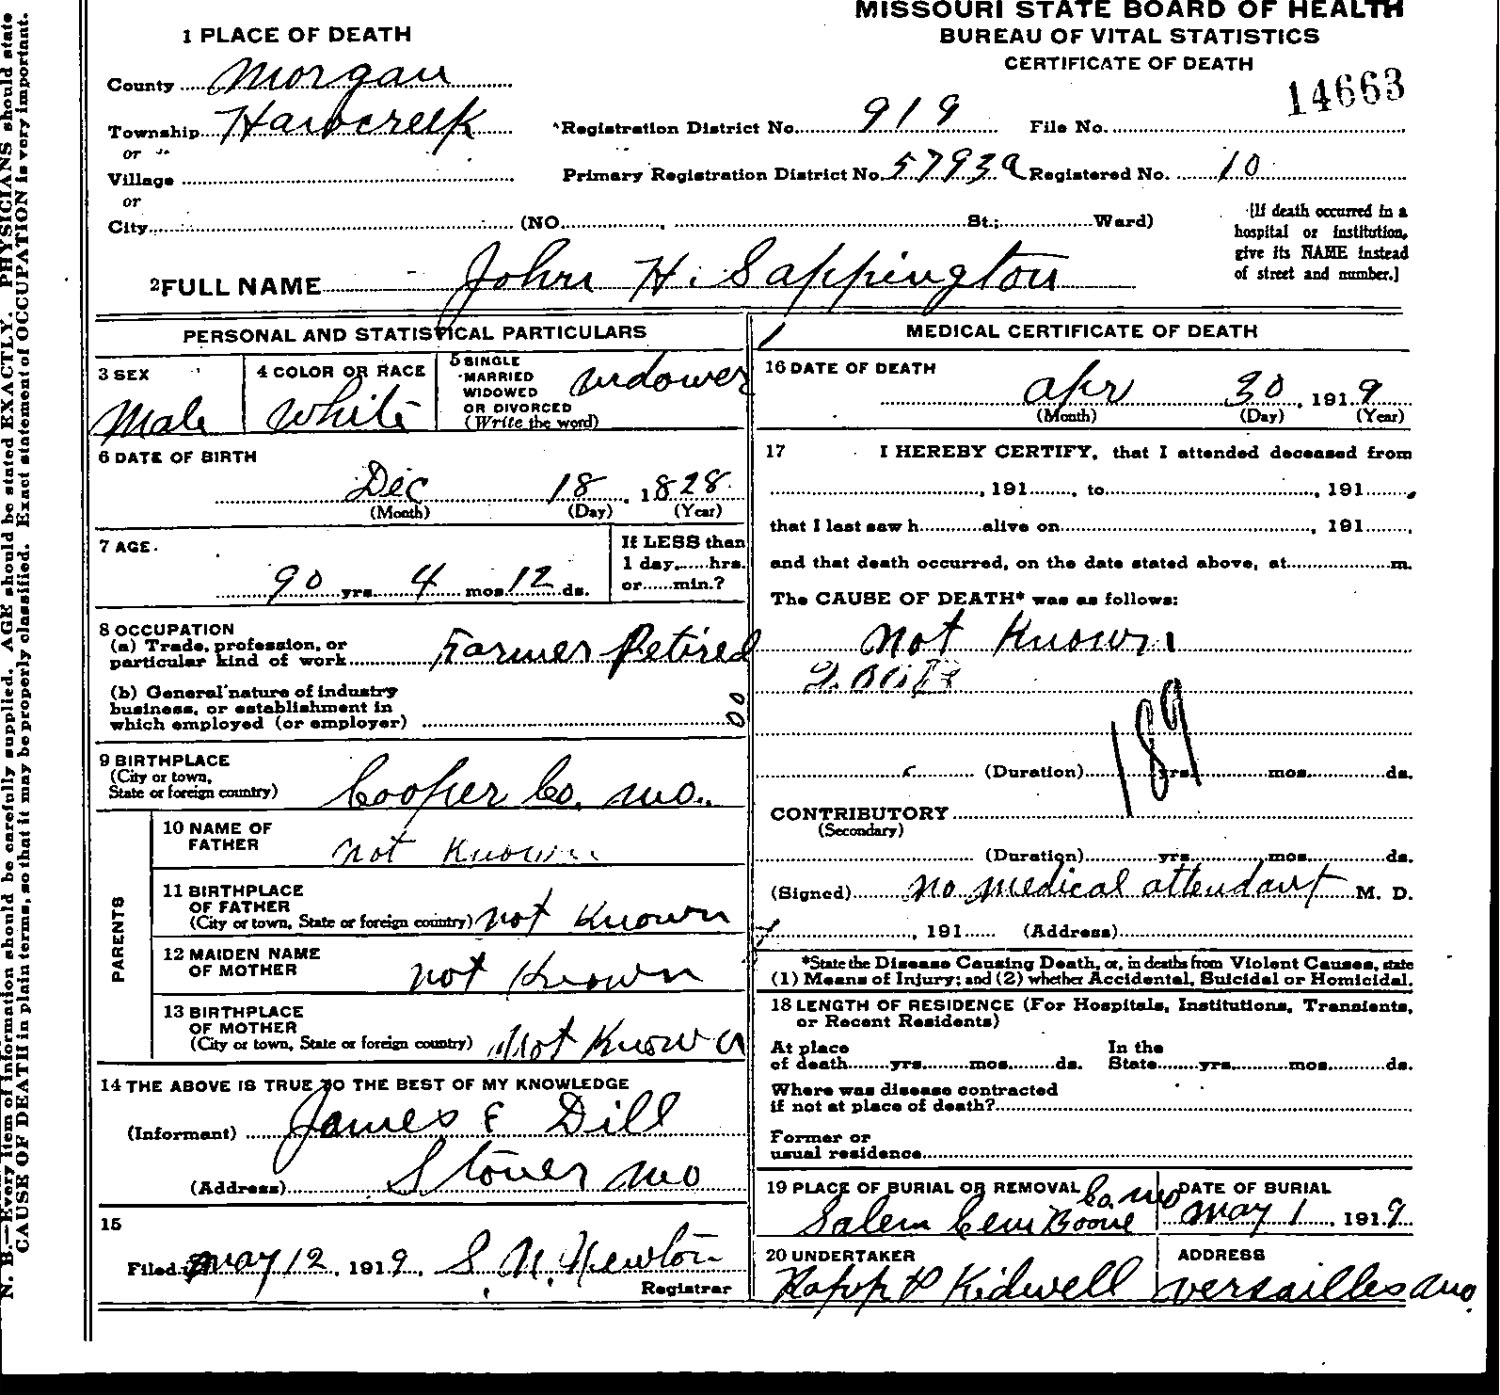 MISSOURI STATE BOARD OF HEALTH
BUREAU OF VITAL STATISTICS
CERTIFICATE OF DEATH
14663
1 PLACE OF DEATH
County Morgan
Township Hawcreek
or
Village
or
City (NO. St.; Ward)
Registration District No. 919 File No.
Primary Registration District No. 5793a Registered No. 10
[If death occurred in a
hospital or institution,
give its NAME instead
of street and number.]
2 FULL NAME John H. Sappington
PERSONAL AND STATISTICAL PARTICULARS
3 SEX
Male
4 COLOR OR RACE
White
5 SINGLE
MARRIED
WIDOWED
OR DIVORCED
(Write the word)
widower
6 DATE OF BIRTH
Dec 18, 1828
(Month) (Day) (Year)
7 AGE
90 yrs. 4 mos. 12 ds.
If LESS than
1 day, hrs.
or min.?
8 OCCUPATION
(a) Trade, profession, or
particular kind of work Farmer Retired
(b) General nature of industry
business, or establishment in
which employed (or employer)
00
9 BIRTHPLACE
(City or town,
State or foreign country) Cooper Co. Mo.
PARENTS
10 NAME OF
FATHER not Known
11 BIRTHPLACE
OF FATHER
(City or town, State or foreign country) not Known
12 MAIDEN NAME
OF MOTHER not Known
13 BIRTHPLACE
OF MOTHER
(City or town, State or foreign country) Not Known
14 THE ABOVE IS TRUE TO THE BEST OF MY KNOWLEDGE
(Informant) James E Dill
(Address) Stover Mo
15
Filed May 12, 1919, S. N. Newton
Registrar
MEDICAL CERTIFICATE OF DEATH
16 DATE OF DEATH
Apr 30, 1919
(Month) (Day) (Year)
17 I HEREBY CERTIFY, that I attended deceased from
, 191 , to , 191 ,
that I last saw h alive on , 191 ,
and that death occurred, on the date stated above, at m.
The CAUSE OF DEATH* was as follows:
not Known
189
(Duration) yrs. mos. ds.
CONTRIBUTORY
(Secondary)
(Duration) yrs. mos. ds.
(Signed) no medical attendant M. D.
, 191 (Address)
*State the Disease Causing Death, or, in deaths from Violent Causes, state
(1) Means of Injury; and (2) whether Accidental, Suicidal or Homicidal.
18 LENGTH OF RESIDENCE (For Hospitals, Institutions, Transients,
or Recent Residents)
At place In the
of death yrs. mos. ds. State yrs. mos. ds.
Where was disease contracted
if not at place of death?
Former or
usual residence
19 PLACE OF BURIAL OR REMOVAL
Salem Cem Boone Co. Mo
DATE OF BURIAL
May 1, 1919
20 UNDERTAKER
Kidwell
ADDRESS
Versailles Mo.
N. B.—Every item of information should be carefully supplied. AGE should be stated EXACTLY. PHYSICIANS should state
CAUSE OF DEATH in plain terms, so that it may be properly classified. Exact statement of OCCUPATION is very important.